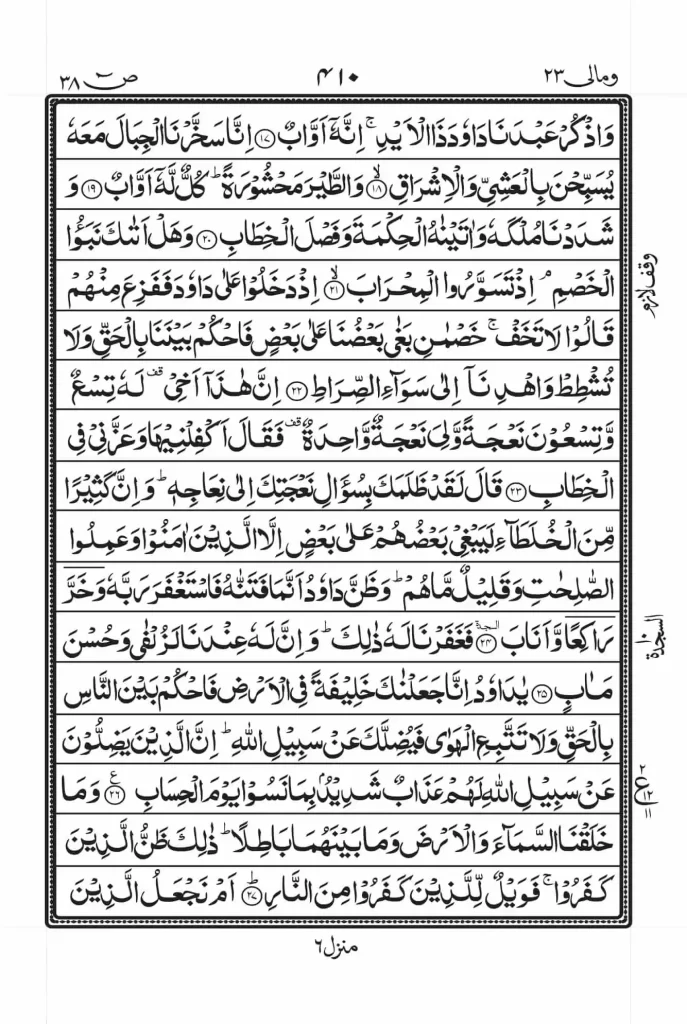 ومالی ۲۳
۴۱۰
ص ۳۸
وَاذْكُرْ عَبْدَنَا دَاوٗدَ ذَا الْاَيْدِ ۚ اِنَّهٗۤ اَوَّابٌ ﴿۱۷﴾ اِنَّا سَخَّرْنَا الْجِبَالَ مَعَهٗ
يُسَبِّحْنَ بِالْعَشِيِّ وَالْاِشْرَاقِ ﴿۱۸﴾ۙ وَالطَّيْرَ مَحْشُوْرَةً ؕ كُلٌّ لَّهٗۤ اَوَّابٌ ﴿۱۹﴾ وَ
شَدَدْنَا مُلْكَهٗ وَاٰتَيْنٰهُ الْحِكْمَةَ وَفَصْلَ الْخِطَابِ ﴿۲۰﴾ وَهَلْ اَتٰىكَ نَبَؤُا
الْخَصْمِ ۘ اِذْ تَسَوَّرُوا الْمِحْرَابَ ﴿۲۱﴾ۙ اِذْ دَخَلُوْا عَلٰى دَاوٗدَ فَفَزِعَ مِنْهُمْ
وقف لازم
قَالُوْا لَا تَخَفْ ۚ خَصْمٰنِ بَغٰى بَعْضُنَا عَلٰى بَعْضٍ فَاحْكُمْ بَيْنَنَا بِالْحَقِّ وَلَا
تُشْطِطْ وَاهْدِنَاۤ اِلٰى سَوَآءِ الصِّرَاطِ ﴿۲۲﴾ اِنَّ هٰذَاۤ اَخِيْ قف لَهٗ تِسْعٌ
وَّتِسْعُوْنَ نَعْجَةً وَّلِيَ نَعْجَةٌ وَّاحِدَةٌ قف فَقَالَ اَكْفِلْنِيْهَا وَعَزَّنِيْ فِي
الْخِطَابِ ﴿۲۳﴾ قَالَ لَقَدْ ظَلَمَكَ بِسُؤَالِ نَعْجَتِكَ اِلٰى نِعَاجِهٖ ؕ وَاِنَّ كَثِيْرًا
مِّنَ الْخُلَطَآءِ لَيَبْغِيْ بَعْضُهُمْ عَلٰى بَعْضٍ اِلَّا الَّذِيْنَ اٰمَنُوْا وَعَمِلُوا
الصّٰلِحٰتِ وَقَلِيْلٌ مَّا هُمْ ؕ وَظَنَّ دَاوٗدُ اَنَّمَا فَتَنّٰهُ فَاسْتَغْفَرَ رَبَّهٗ وَخَرَّ
رَاكِعًا وَّاَنَابَ ﴿۲۴﴾ السجدة فَغَفَرْنَا لَهٗ ذٰلِكَ ؕ وَاِنَّ لَهٗ عِنْدَنَا لَزُلْفٰى وَحُسْنَ
السجدة ۱۰
مَاٰبٍ ﴿۲۵﴾ يٰدَاوٗدُ اِنَّا جَعَلْنٰكَ خَلِيْفَةً فِي الْاَرْضِ فَاحْكُمْ بَيْنَ النَّاسِ
بِالْحَقِّ وَلَا تَتَّبِعِ الْهَوٰى فَيُضِلَّكَ عَنْ سَبِيْلِ اللّٰهِ ؕ اِنَّ الَّذِيْنَ يَضِلُّوْنَ
عَنْ سَبِيْلِ اللّٰهِ لَهُمْ عَذَابٌ شَدِيْدٌۢ بِمَا نَسُوْا يَوْمَ الْحِسَابِ ﴿۲۶﴾ ع وَمَا
۲ ع ۱۲ ۱۱
خَلَقْنَا السَّمَآءَ وَالْاَرْضَ وَمَا بَيْنَهُمَا بَاطِلًا ؕ ذٰلِكَ ظَنُّ الَّذِيْنَ
كَفَرُوْا ۚ فَوَيْلٌ لِّلَّذِيْنَ كَفَرُوْا مِنَ النَّارِ ﴿۲۷﴾ؕ اَمْ نَجْعَلُ الَّذِيْنَ
منزل ۶